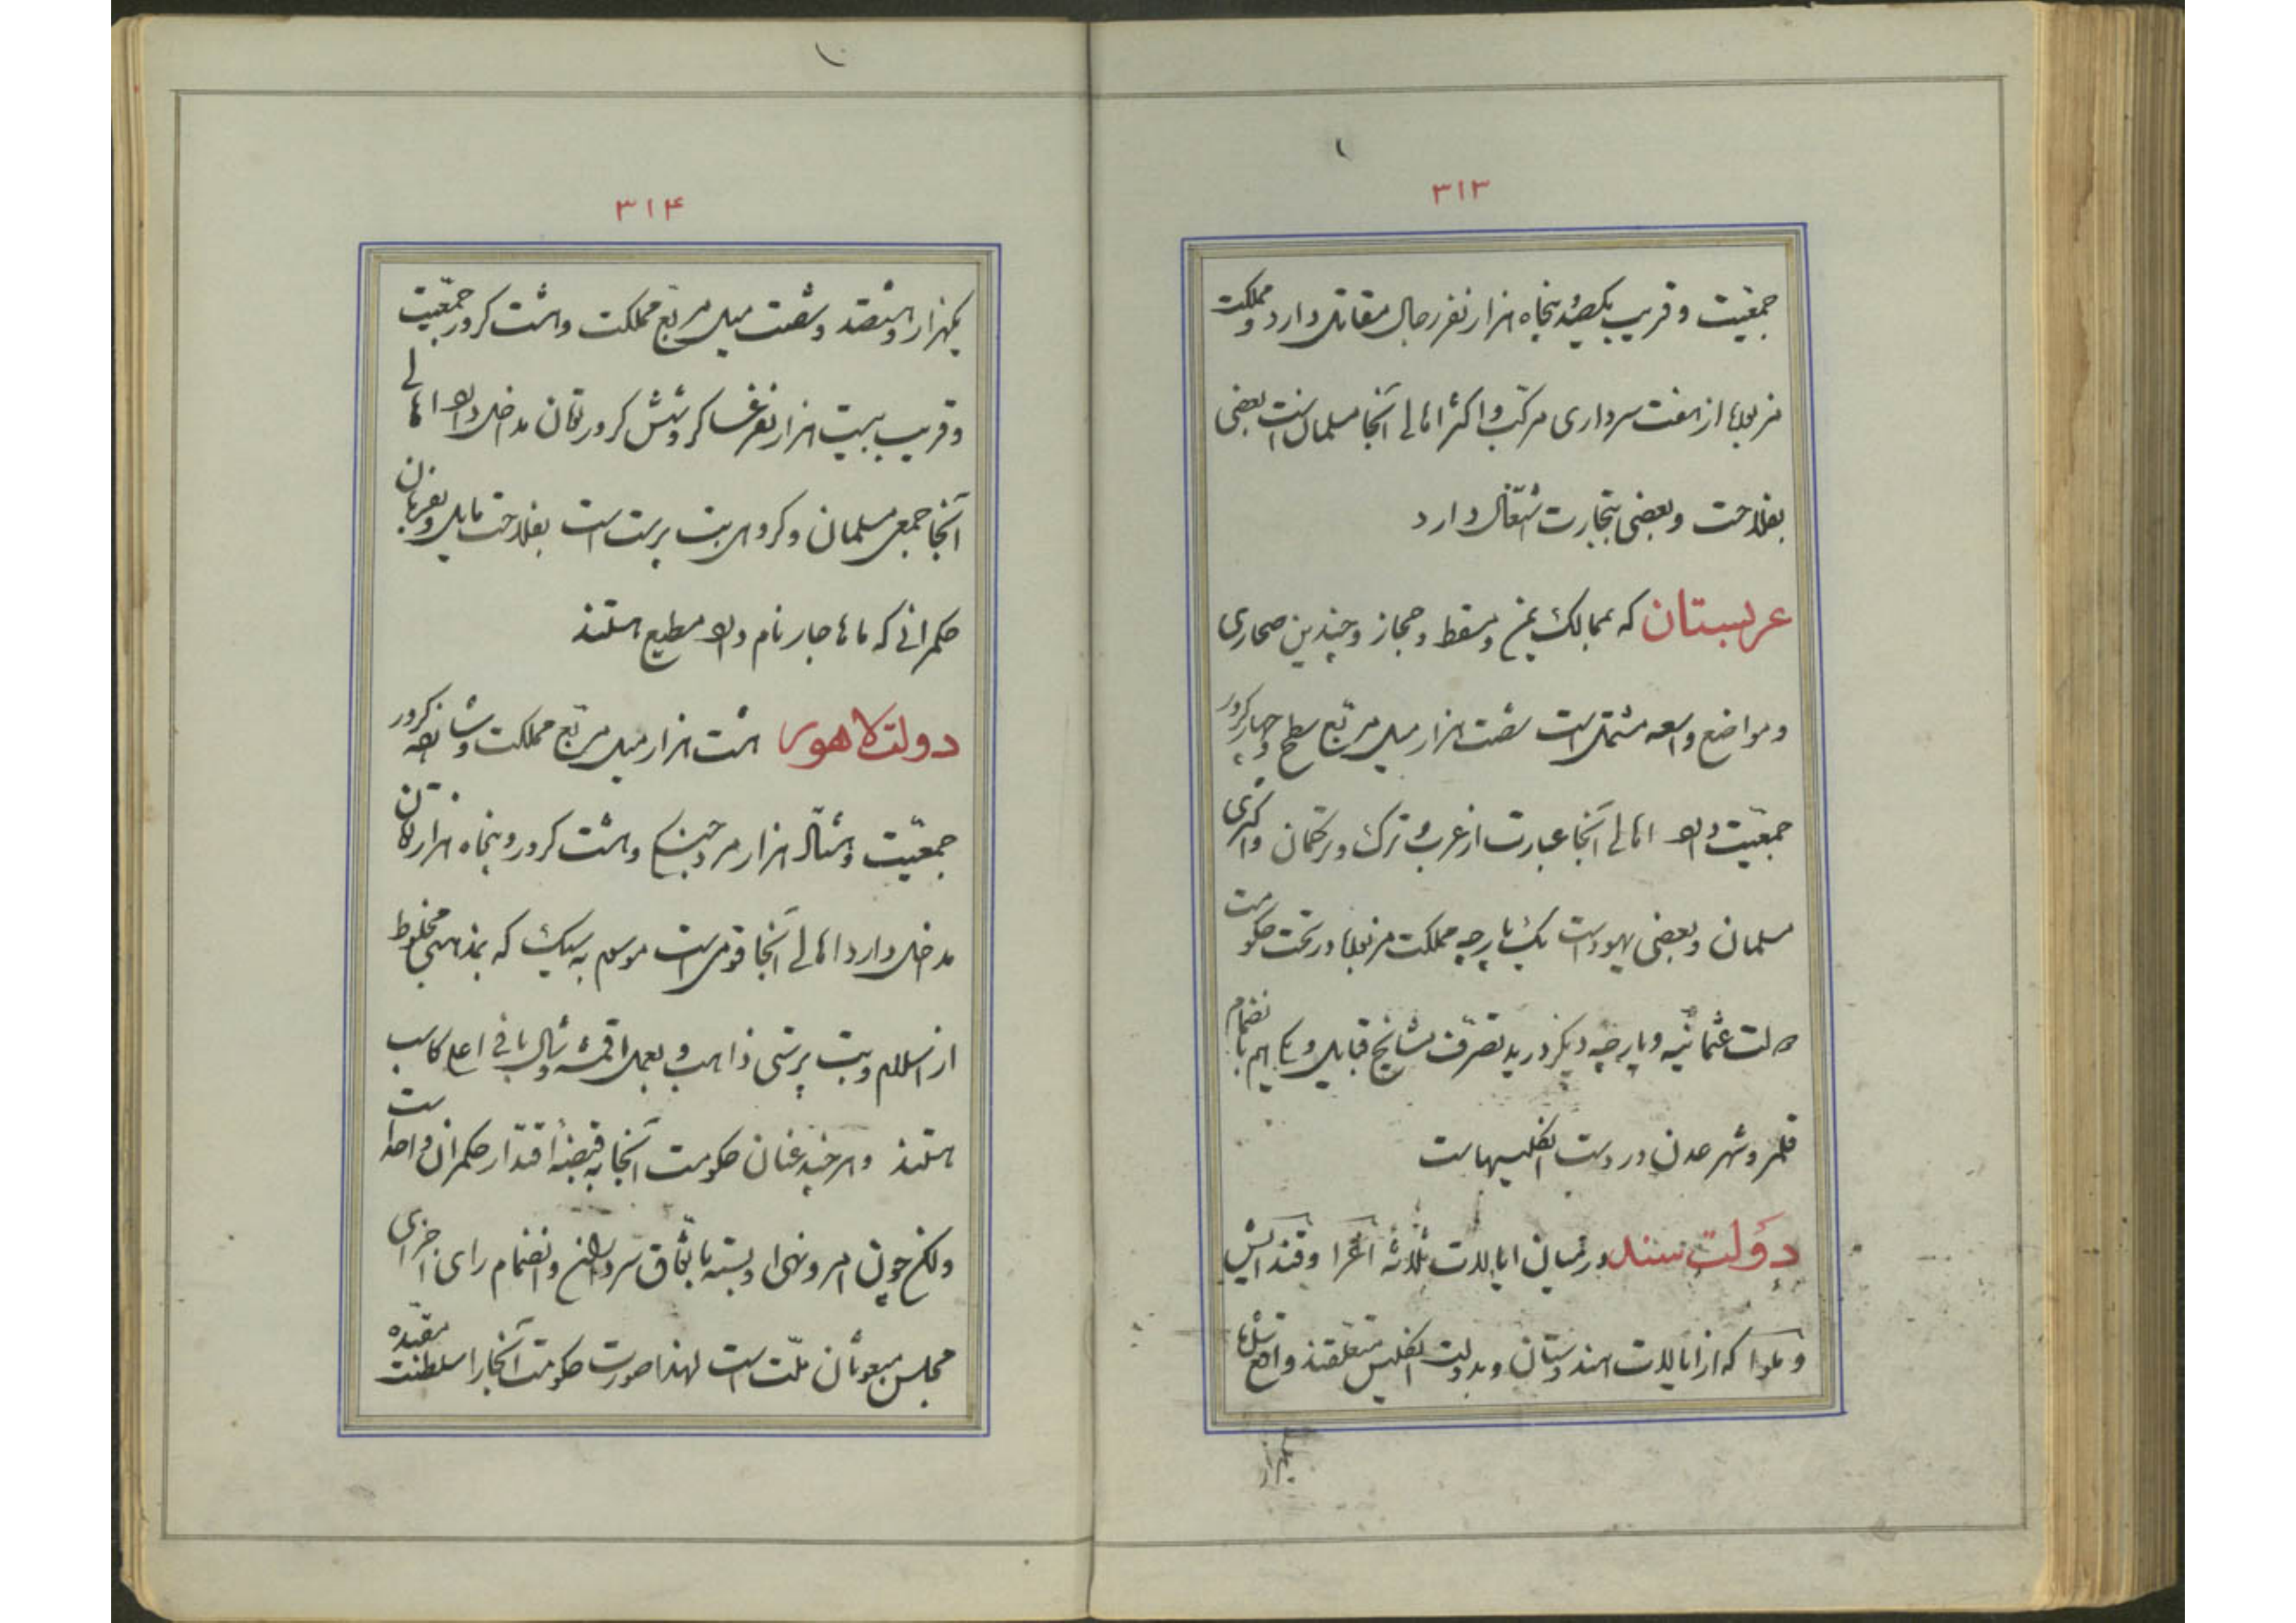 ۳۱۳
جمعیّت و قریب یکصد و پنجاه هزار نفر رجال مقاتل دارد و مملکت
مزبور از هفت سرداری مرکّب و اکثر اهالی آنجا مسلمان است بعضی
بفلاحت و بعضی بتجارت اشتغال دارد
عربستان که بممالک یمن و مسقط و حجاز و چندین صحاری
و مواضع واسعه مشتمل است شصت هزار میل مربّع سطح و چهار کرور
جمعیّت دارد اهالی آنجا عبارت از عرب و ترک و ترکمان و اکثری
مسلمان و بعضی یهود است یک پارچه مملکت مزبور در تحت حکومت
دولت عثمانیّه و پارچه دیگر در ید تصرّف مشایخ قبایل و یکی هم بانضمام
قلمرو شهر عدن در دست انگلیسهاست
دولت سند در میان ایالات ثلاثهٔ اغرا و قندایش
و ملوا که از ایالات هندوستان و بدولت انگلیس متعلّقند واقع
یکهزار
۳۱۴
یکهزار و هشتصد و شصت میل مربّع مملکت و هشت کرور جمعیّت
و قریب بیست هزار نفر عساکر و شش کرور تومان مداخل دارد اهالی
آنجا جمعی مسلمان و گروهی بت پرست است بفلاحت مایل و بفرمان
حکمرانی که ماهاجار نام دارد مطیع هستند
دولت لاهور هشت هزار میل مربّع مملکت و شانزده کرور
جمعیّت و هشتاد هزار مرد جنگی و هشت کرور و پنجاه هزار تومان
مداخل دارد اهالی آنجا قومی است موسوم به سیک که بمذهبی مخلوط
از اسلام و بت پرستی ذاهب و بعمل اقمشه و شال بافی اعلی کاسب
هستند و هر چند عنان حکومت آنجا به قبضهٔ اقتدار حکمران واحد است
ولکن چون امر و نهی او بسته باتّفاق سرداران و انضمام رای اجزای
مجلس مبعوثان ملّت است لهذا صورت حکومت آنجا را سلطنت مقیّده